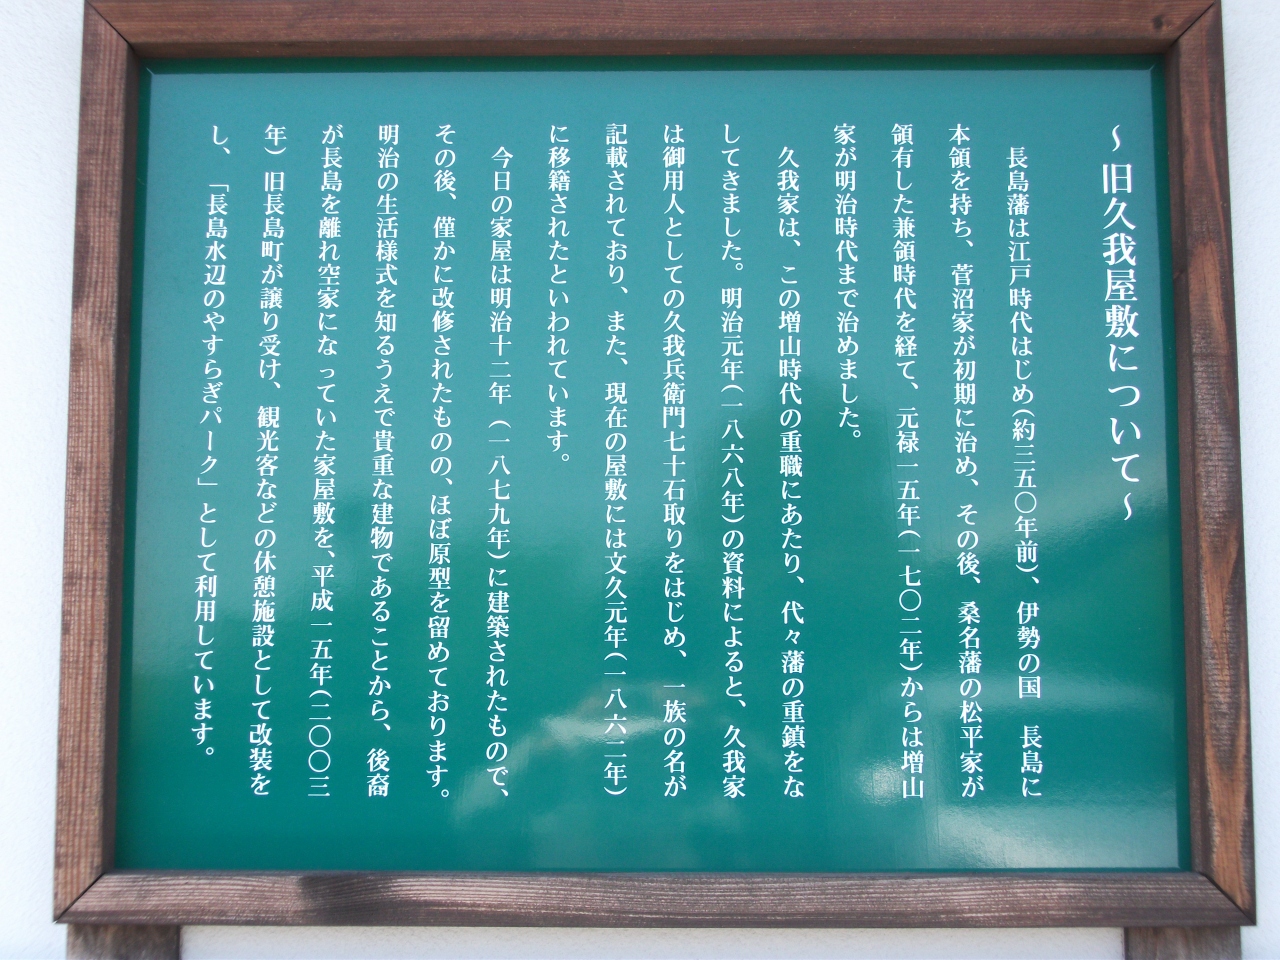 ～旧久我屋敷について～
長島藩は江戸時代はじめ(約三五〇年前)、伊勢の国　長島に
本領を持ち、菅沼家が初期に治め、その後、桑名藩の松平家が
領有した兼領時代を経て、元禄一五年(一七〇二年)からは増山
家が明治時代まで治めました。
久我家は、この増山時代の重職にあたり、代々藩の重鎮をな
してきました。明治元年(一八六八年)の資料によると、久我家
は御用人としての久我兵衛門七十石取りをはじめ、一族の名が
記載されており、また、現在の屋敷には文久元年(一八六二年)
に移籍されたといわれています。
今日の家屋は明治十二年(一八七九年)に建築されたもので、
その後、僅かに改修されたものの、ほぼ原型を留めております。
明治の生活様式を知るうえで貴重な建物であることから、後裔
が長島を離れ空家になっていた家屋敷を、平成一五年(二〇〇三
年)旧長島町が譲り受け、観光客などの休憩施設として改装を
し、「長島水辺のやすらぎパーク」として利用しています。